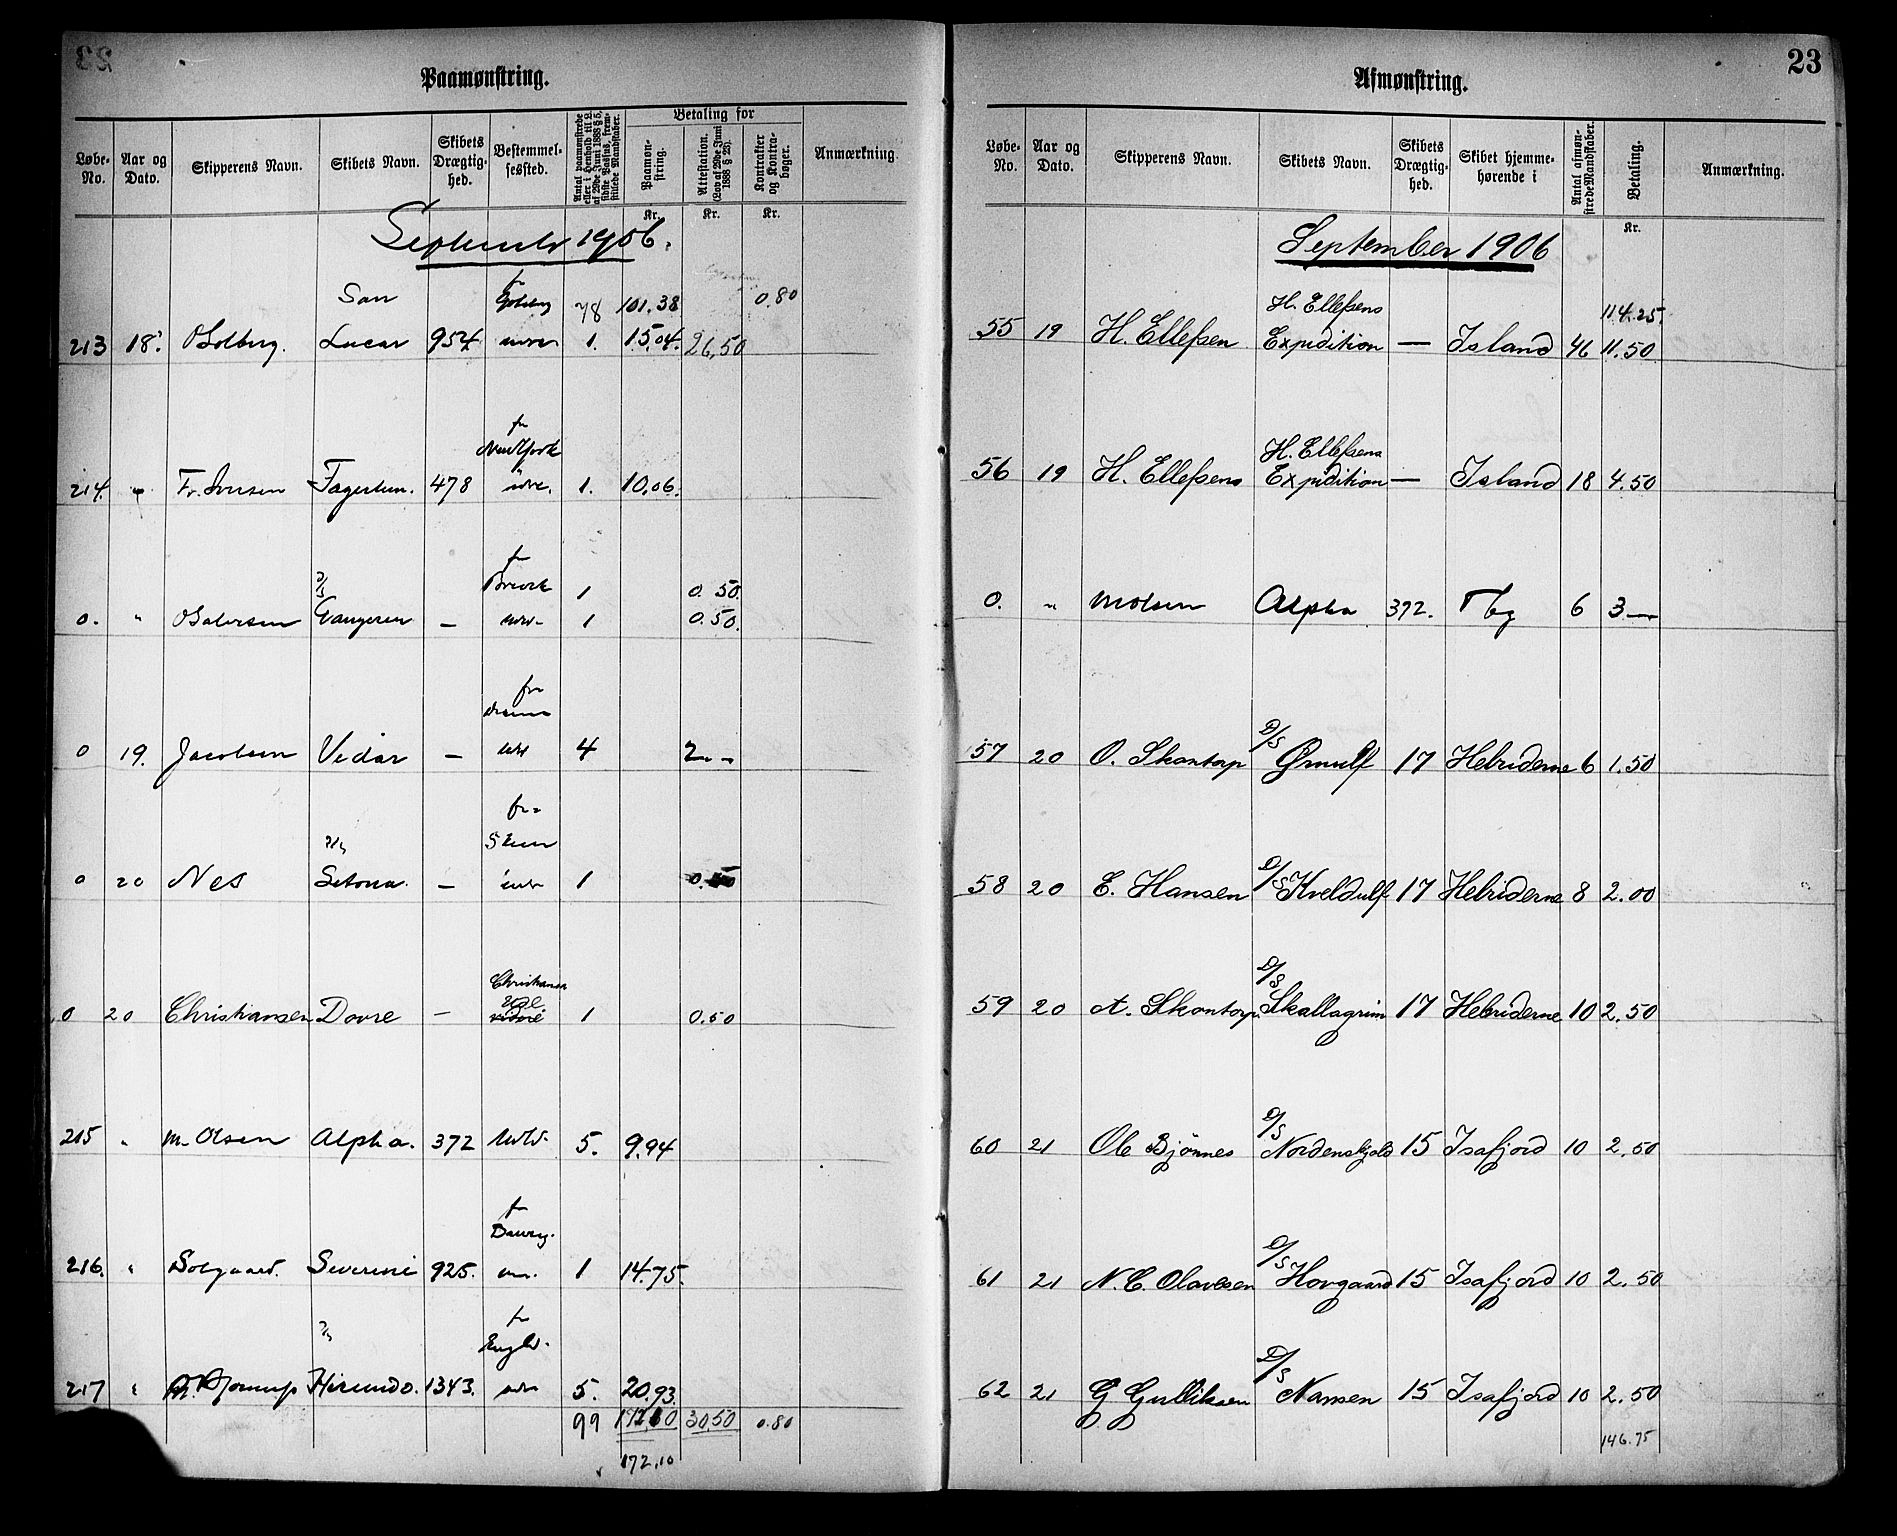 Paamønstring.
Løbe-No. Aar og Dato. Skipperens Navn. Skibets Navn. Skibets Drægtighed. Bestemmelsessted. Antal paamønstrede eller i Henhold til L. af 29de Juni 1888 § 5, sidste Passus, fremstillede Mandskaber. Betaling for Paamønstring. Attestation. (Lov af 29de Juni 1888 § 25). Kontrakter og Kontrabøger. Anmærkning.
Kr. Kr. Kr.
September 1906.
San 78 101.38 0.80
213 18. O Solberg. Lucar 954 1. 15.04. 26,50
fr
214. " Fr. Iversen 478 1. 10.06.
fr
1 0.50.
0. " Gangeren — 1 0.50.
fra
0 19. Jacobsen Vidar — 4 2.-
fra
Skien
0 20 Nes — 1
0 20 Christiansen Dovre — 1 0.50
215 " M. Olsen Alpha. 372 5. 9.94
fr
216. " Solgaard. Severine 925. 1 14.75.
fr
Engld.
217 " Hirundo. 1343. 5. 20.93.
99 30,50 0.80
172.10
23
Afmønstring.
Løbe-No. Aar og Dato. Skipperens Navn. Skibets Navn. Skibets Drægtighed. Skibet hjemmehørende i Antal afmønstrede Mandskaber. Betaling. Anmærkning.
Kr.
September 1906
H. Ellefsens 114.25.
55 19 H. Ellefsen Expidition — Island 46 11.50
H. Ellefsens
56 19 H. Ellefsens Expidition — Island 18 4.50
0. " M Olsen Alpha 372. Tbg 6 3—
D/S
57 20 O. Skontorp Ørnulf 17 Hebriderne 6 1.50
D/S
58 20 E. Hansen Kveldulf 17 Hebriderne 8 2.00
D/S
59 20 A. Skontorp Skallagrim 17 Hebriderne 10 2.50
D/S
60 21 Ole Bjønnes Nordenskjold 15 Isafjord 10 2.50
D/S
61 21 N. C. Olavesen Hovgaard 15 Isafjord 10 2.50
D/S
62 21 G Gulliksen Nansen 15 Isafjord 10 2.50
146.75